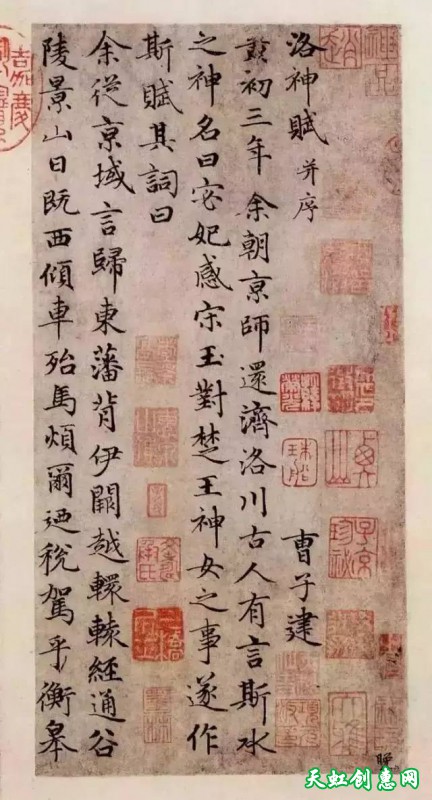 洛神賦 并序 曹子建
黃初三年余朝京師還濟洛川古人有言斯水
之神名曰宓妃感宋玉對楚王神女之事遂作
斯賦其詞曰
余從京域言歸東藩背伊闕越轘轅經通谷
陵景山日既西傾車殆馬煩爾迺稅駕乎衡皋
神品
子京
嘉慶
天虹创意网